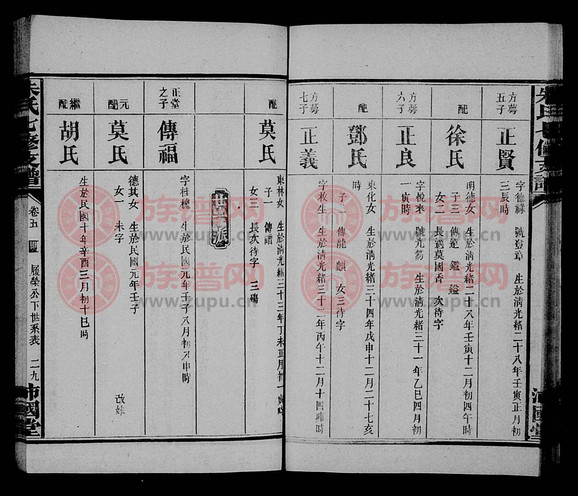 方蕚
五子
正賢
字德禄
生於清光緒二十八年壬寅正月初
三辰時
配
徐氏
明德女 生於清光緒二十八年壬寅十二月初四午時
子三 傳
女二 長適莫國香 次待字
方蕚
六子
正良
字悅來
生於清光緒三十一年乙巳四月初
一寅時
配
鄧氏
東化女 生於清光緒三十四年戊申十二月二十七亥
時
子一 傳龍
女三待字
方蕚
七子
正義
字枚生
生於清光緒三十二年丙午十二月十四
時
配
莫氏
林女 生於清光緒三十三年丁未正月
子一 傳
女三 長次待字 三殤
世派
正堂
之子
傳福
字桂
生於民國元年壬子八月初
時
元
配
莫氏
德其女 生於民國元年壬子
女一 未字
改姓
繼
配
胡氏
生於民國十年辛酉三月初十巳時
朱氏七修支譜
卷五
履榮公下世系表
二九
沛國堂
族谱网
www.zupu.cn